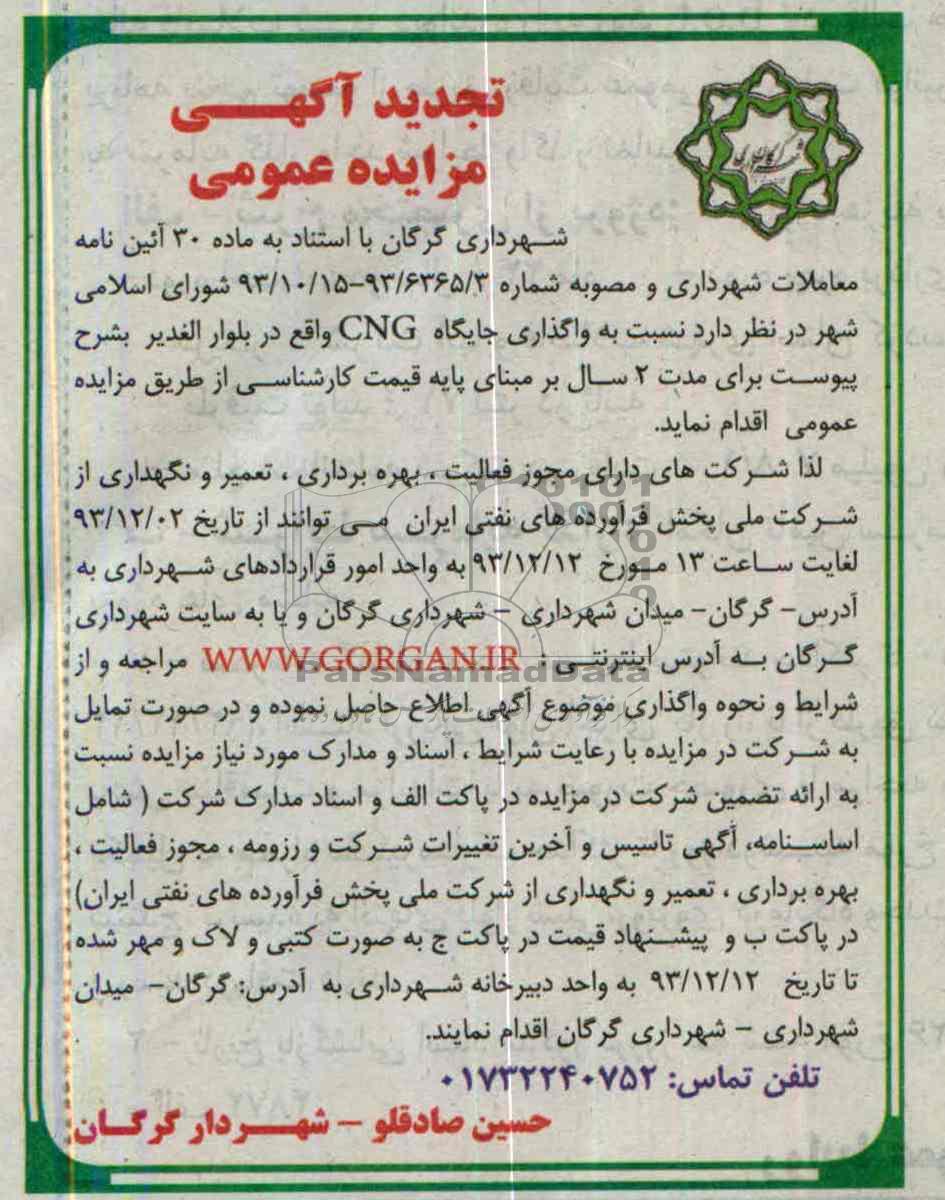 تجدید آگهی
مزایده عمومی
شهرداری گرگان با استناد به ماده ۳۰ آئین نامه
معاملات شهرداری و مصوبه شماره ۹۳/۶۳۶۵/۳-۹۳/۱۰/۱۵ شورای اسلامی
شهر در نظر دارد نسبت به واگذاری جایگاه CNG واقع در بلوار الغدیر بشرح
پیوست برای مدت ۲ سال بر مبنای پایه قیمت کارشناسی از طریق مزایده
عمومی اقدام نماید.
لذا شرکت های دارای مجوز فعالیت ، بهره برداری ، تعمیر و نگهداری از
شرکت ملی پخش فرآورده های نفتی ایران می توانند از تاریخ ۹۳/۱۲/۰۲
لغایت ساعت ۱۳ مورخ ۹۳/۱۲/۱۲ به واحد امور قراردادهای شهرداری به
آدرس- گرگان- میدان شهرداری - شهرداری گرگان و یا به سایت شهرداری
گرگان به آدرس اینترنتی : WWW.GORGAN.IR مراجعه و از
ParsNamadData
شرایط و نحوه واگذاری موضوع آگهی اطلاع حاصل نموده و در صورت تمایل
به شرکت در مزایده با رعایت شرایط ، اسناد و مدارک مورد نیاز مزایده نسبت
به ارائه تضمین شرکت در مزایده در پاکت الف و اسناد مدارک شرکت ( شامل
اساسنامه، آگهی تاسیس و آخرین تغییرات شرکت و رزومه ، مجوز فعالیت ،
بهره برداری ، تعمیر و نگهداری از شرکت ملی پخش فرآورده های نفتی ایران)
در پاکت ب و پیشنهاد قیمت در پاکت ج به صورت کتبی و لاک و مهر شده
تا تاریخ ۹۳/۱۲/۱۲ به واحد دبیرخانه شهرداری به آدرس: گرگان- میدان
شهرداری - شهرداری گرگان اقدام نمایند.
تلفن تماس: ۰۱۷۳۲۲۴۰۷۵۲
حسین صادقلو - شهردار گرگان